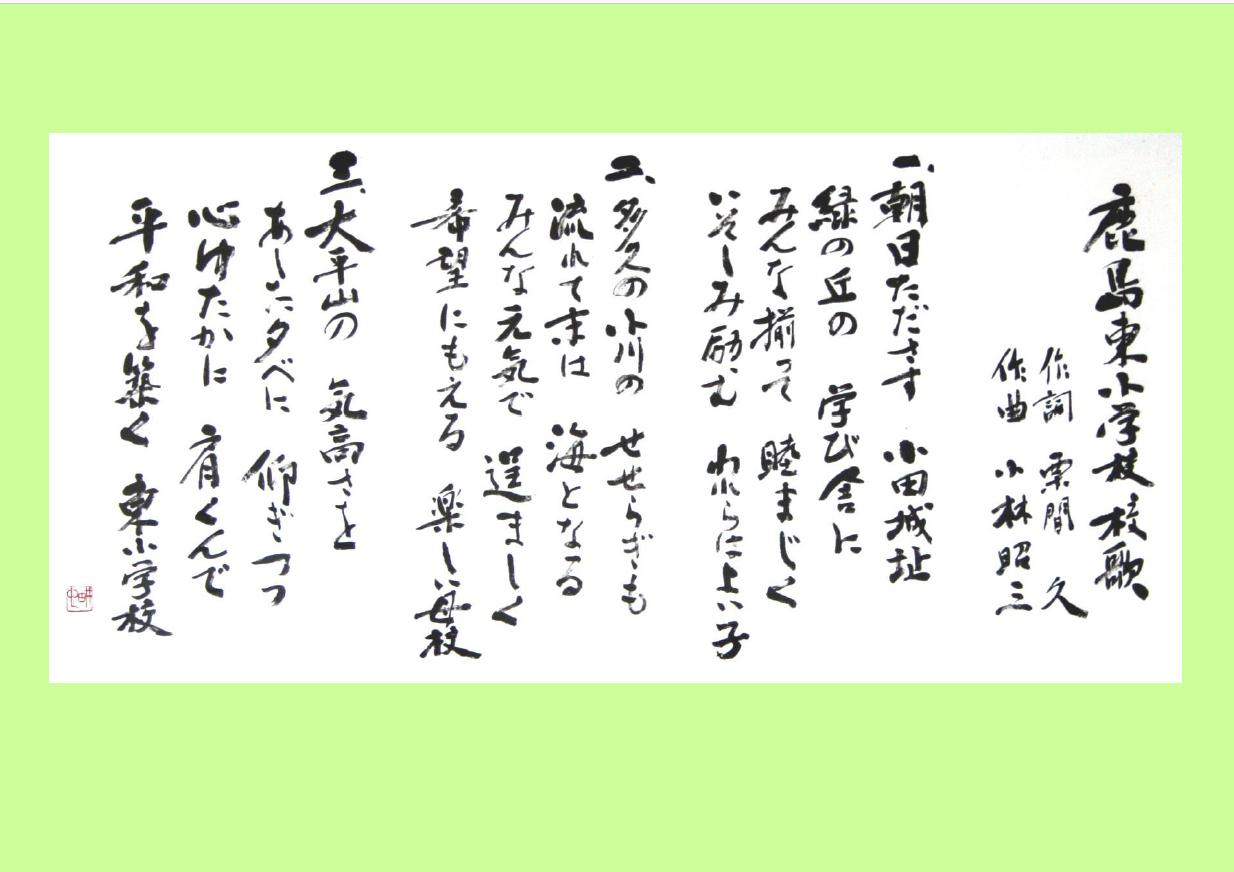 鹿島東小学校 校歌
作詞 栗間 久
作曲 小林 昭三
一、朝日たださす 小田城址
緑の丘の 学び舎に
みんな揃って 睦まじく
いそしみ励む われらはよい子
二、多久の小川の せせらぎも
流れて末は 海となる
みんな元気で 逞ましく
希望にもえる 楽しい母校
三、大平山の 気高さを
あした夕べに 仰ぎつつ
心ゆたかに 肩くんで
平和を築く 東小学校